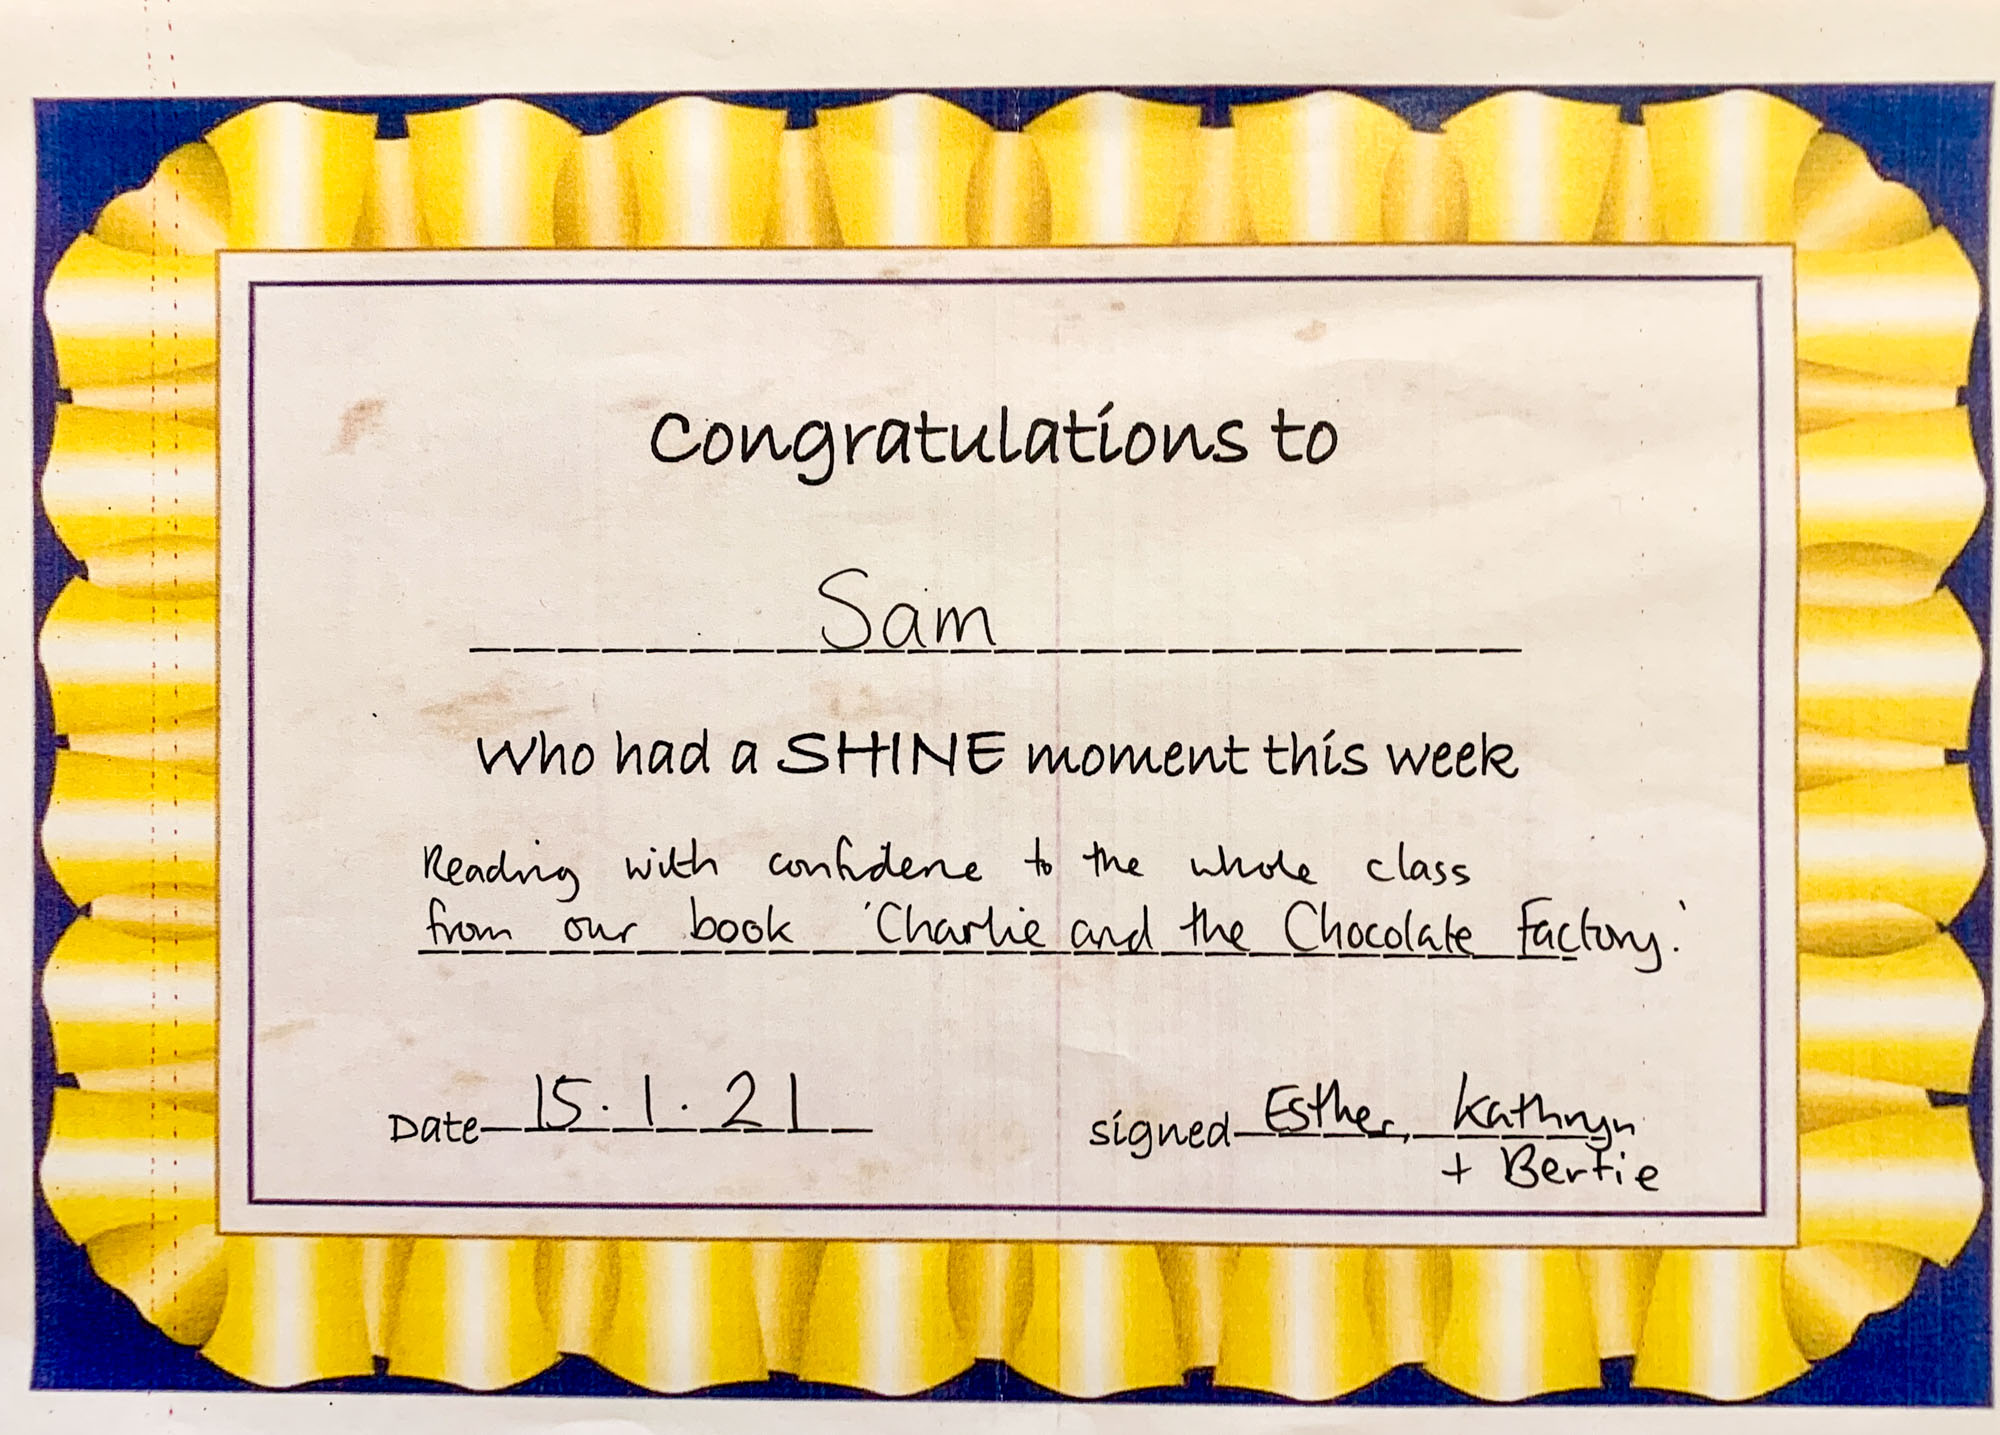 Congratulations to
Sam
Who had a SHINE moment this week
Reading with confidence to the whole class
from our book 'Charlie and the Chocolate Factory.'
Date 15.1.21
signed Esther, Kathryn
+ Bertie